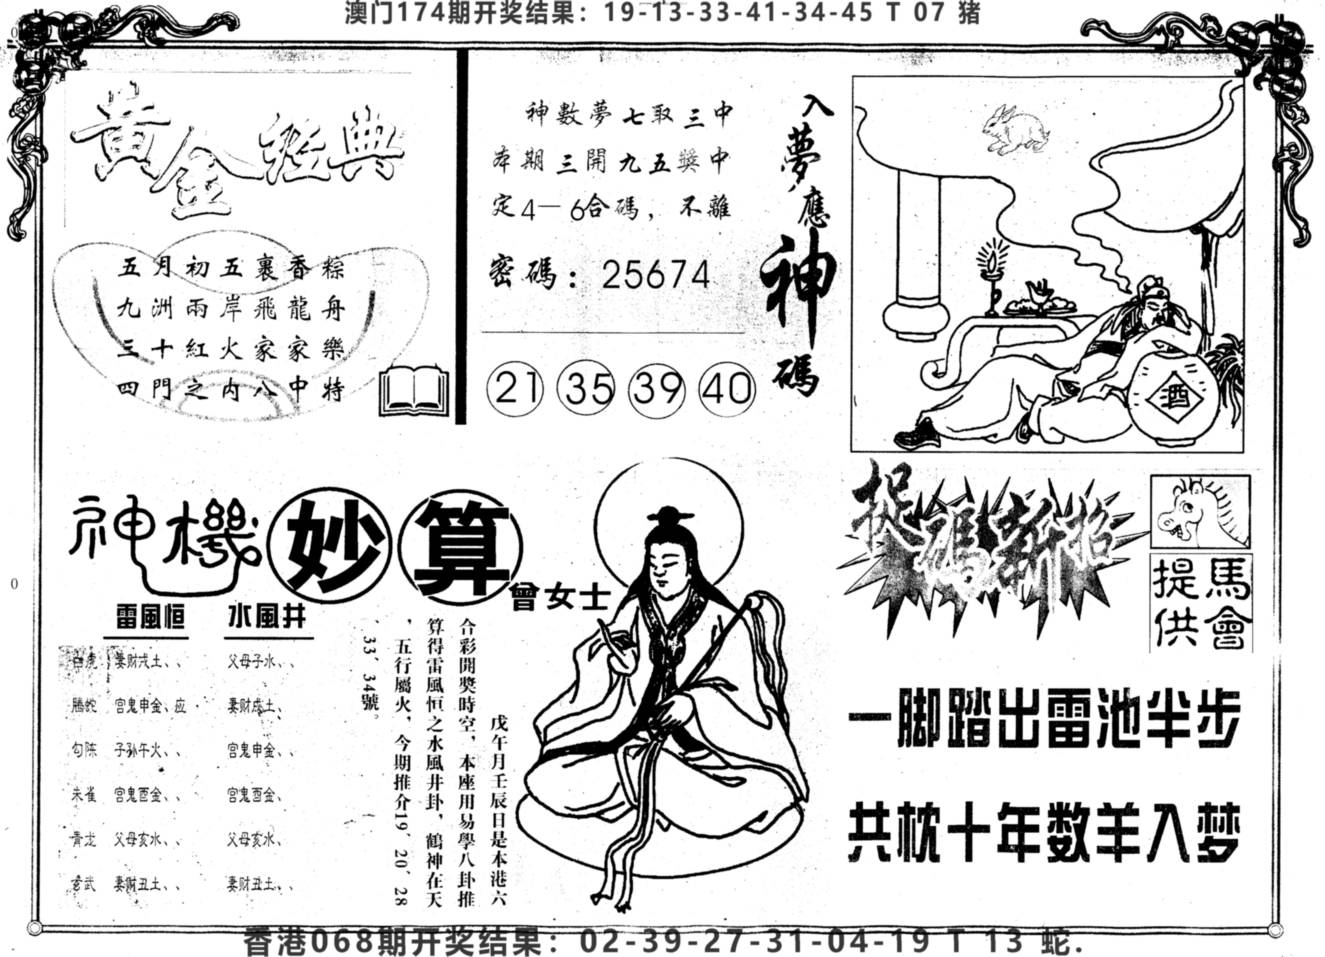 澳门174期开奖结果：19-13-33-41-34-45 T 07 猪
黃金經典
五月初五裹香粽
九洲兩岸飛龍舟
三十紅火家家樂
四門之內八中特
神數夢七取三中
本期三開九五獎中
定4—6合碼，不離
密碼：25674
21 35 39 40
入夢應神碼
酒
神機妙算
曾女士
雷風恒 水風井
白虎 妻财戌土、、 父母子水、、
螣蛇 宫鬼申金、应 妻财戌土、
勾陈 子孙午火、、 宫鬼申金、、
朱雀 宫鬼酉金、、 宫鬼酉金、
青龙 父母亥水、、 父母亥水、
玄武 妻财丑土、、 妻财丑土、、
戊午月壬辰日是本港六
合彩開獎時空，本座用易學八卦推
算得雷風恒之水風井卦，鶴神在天
，五行屬火，今期推介19、20、28
、33、34號。
捉碼新招
馬會
提供
一脚踏出雷池半步
共枕十年数羊入梦
香港068期开奖结果：02-39-27-31-04-19 T 13 蛇.
0
0